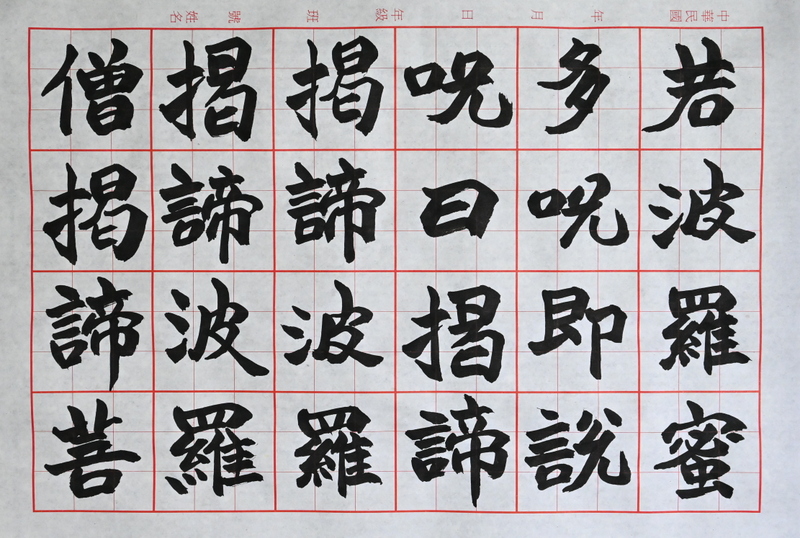 中華民國 年 月 日 年級 班 號 姓名
若波羅蜜
多呪即說
呪曰揭諦
揭諦波羅
揭諦波羅
僧揭諦菩